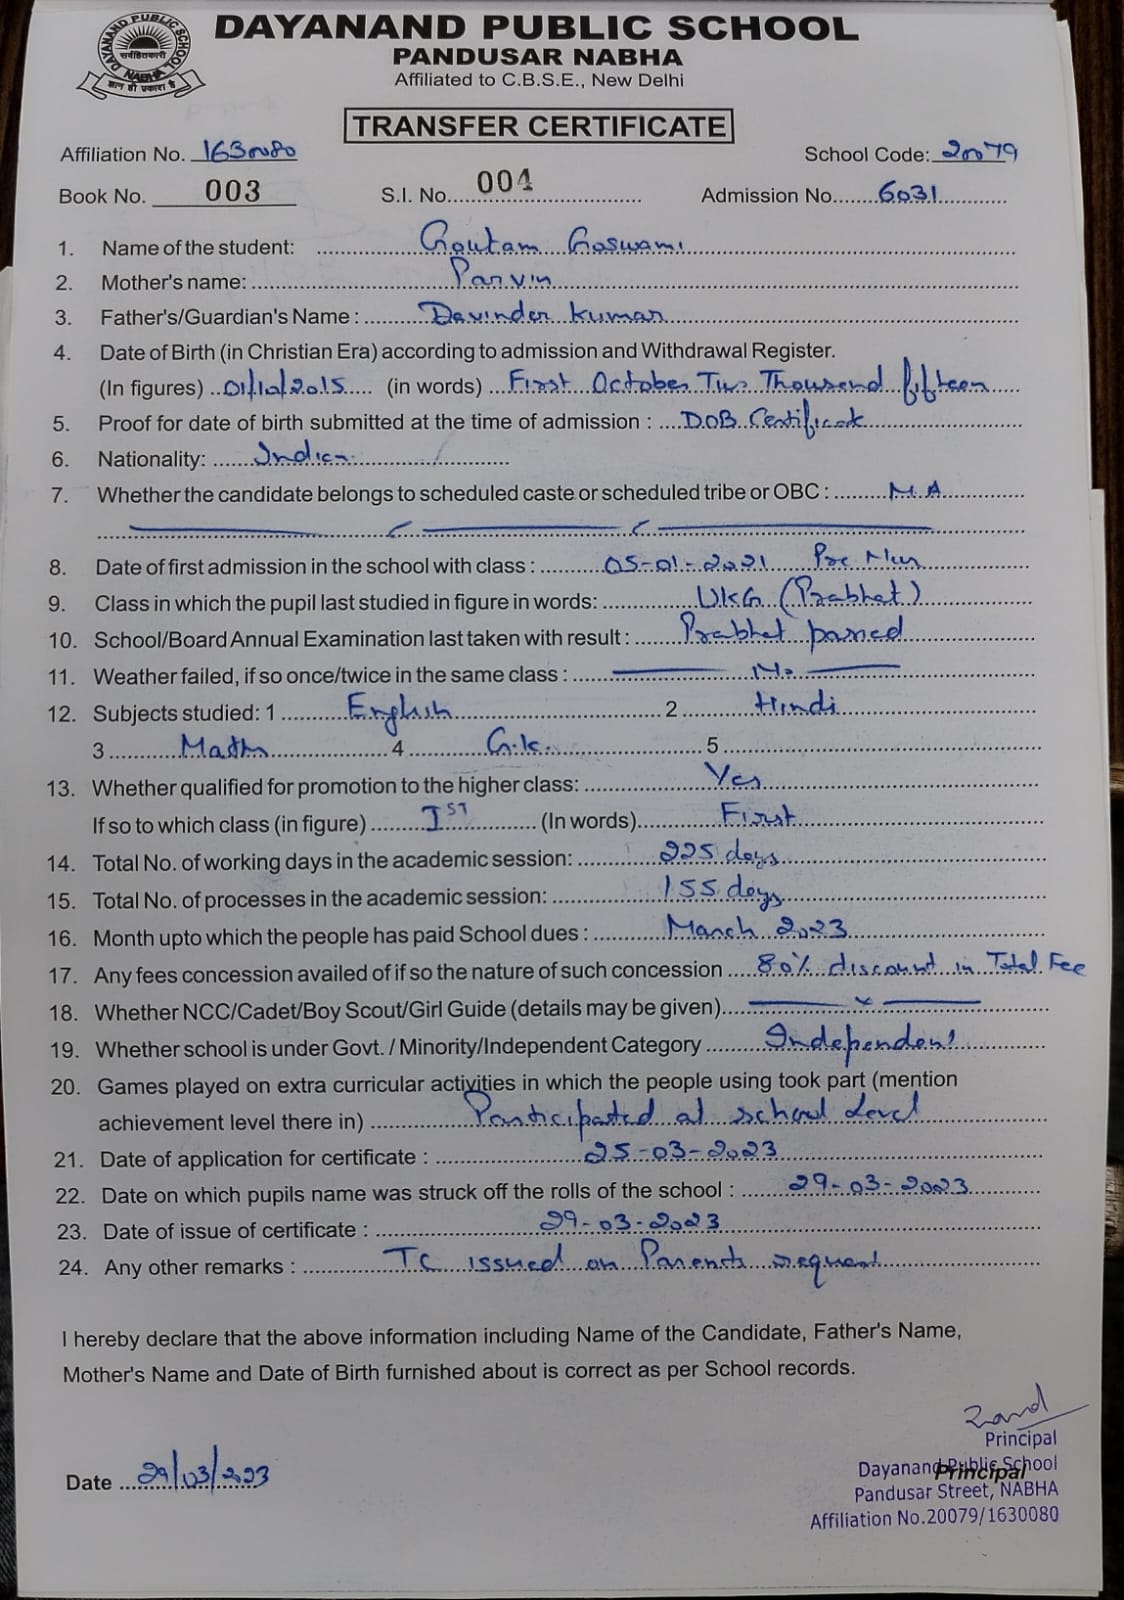 DAYANAND PUBLIC SCHOOL
PANDUSAR NABHA
Affiliated to C.B.S.E., New Delhi
DAYANAND PUBLIC SCHOOL
NABHA
TRANSFER CERTIFICATE
Affiliation No. 1630080 School Code: 20079
Book No. 003 S.I. No. 004 Admission No. 6031
1. Name of the student: Goutam Goswami
2. Mother's name: Parvin
3. Father's/Guardian's Name : Davinder Kumar
4. Date of Birth (in Christian Era) according to admission and Withdrawal Register.
(In figures) 01/10/2015 (in words) First October Two Thousand fifteen
5. Proof for date of birth submitted at the time of admission : D.O.B. Certificate
6. Nationality: Indian
7. Whether the candidate belongs to scheduled caste or scheduled tribe or OBC : N.A
8. Date of first admission in the school with class : 05-01-2021 Pre Nur
9. Class in which the pupil last studied in figure in words: UKG (Prabhat)
10. School/Board Annual Examination last taken with result : Prabhat passed
11. Weather failed, if so once/twice in the same class : No
12. Subjects studied: 1 English 2 Hindi
3 Maths 4 G.k. 5
13. Whether qualified for promotion to the higher class: Yes
If so to which class (in figure) IST (In words) First
14. Total No. of working days in the academic session: 225 days
15. Total No. of processes in the academic session: 155 days
16. Month upto which the people has paid School dues : March 2023
17. Any fees concession availed of if so the nature of such concession 80% discount in Total Fee
18. Whether NCC/Cadet/Boy Scout/Girl Guide (details may be given) x
19. Whether school is under Govt. / Minority/Independent Category Independent
20. Games played on extra curricular activities in which the people using took part (mention
achievement level there in) Participated at school level
21. Date of application for certificate : 25-03-2023
22. Date on which pupils name was struck off the rolls of the school : 29-03-2023
23. Date of issue of certificate : 29-03-2023
24. Any other remarks : TC issued on Parents request
I hereby declare that the above information including Name of the Candidate, Father's Name,
Mother's Name and Date of Birth furnished about is correct as per School records.
Principal
Date 29/03/2023 Dayanand Public School
Principal
Pandusar Street, NABHA
Affiliation No.20079/1630080